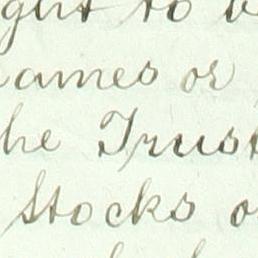 ght to b
ames or
he Trust
Stocks o